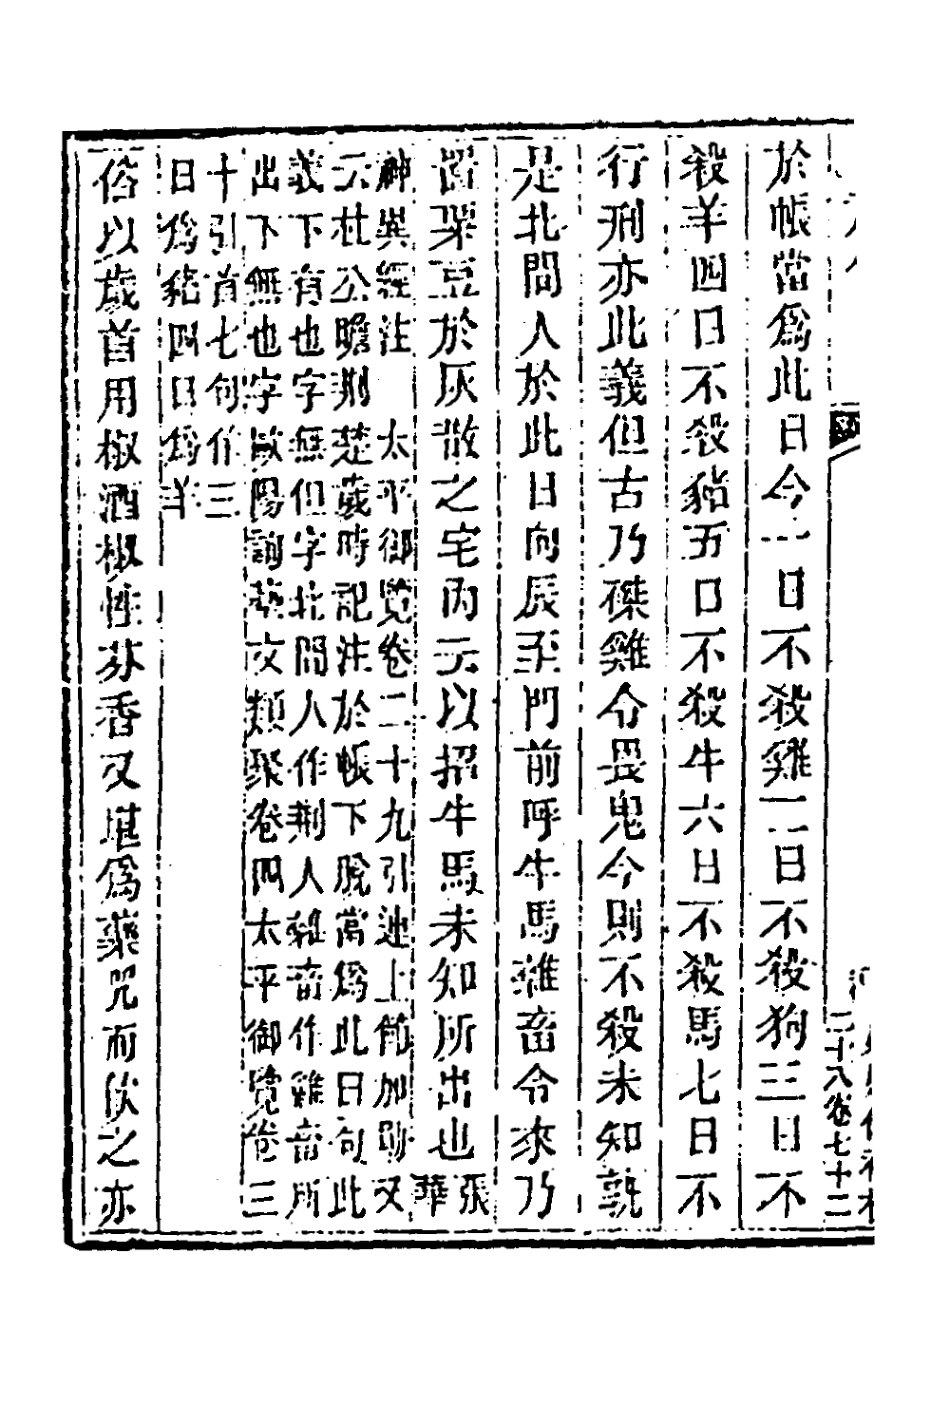 於帳當爲此日今一日不殺雞二日不殺狗三日不
殺羊四日不殺豬五日不殺牛六日不殺馬七日不
行刑亦此義但古乃磔雞令畏鬼今則不殺未知孰
是北間人於此日向辰至門前呼牛馬雜畜令來乃
置粟豆於灰散之宅內云以招牛馬未知所出也張華
神異經注 太平御覽卷二十九引連上節加勛又
云杜公瞻荆楚歲時記注於帳下脫當爲此日句此
義下有也字無但字北間人作荆人雜畜作雞畜所
出下無也字歐陽詢藝文類聚卷四太平御覽卷三
十引首七句作三
日爲豬四日爲羊
俗以歲首用椒酒椒性芬香又堪爲藥咒而飲之亦
二十八卷七十二